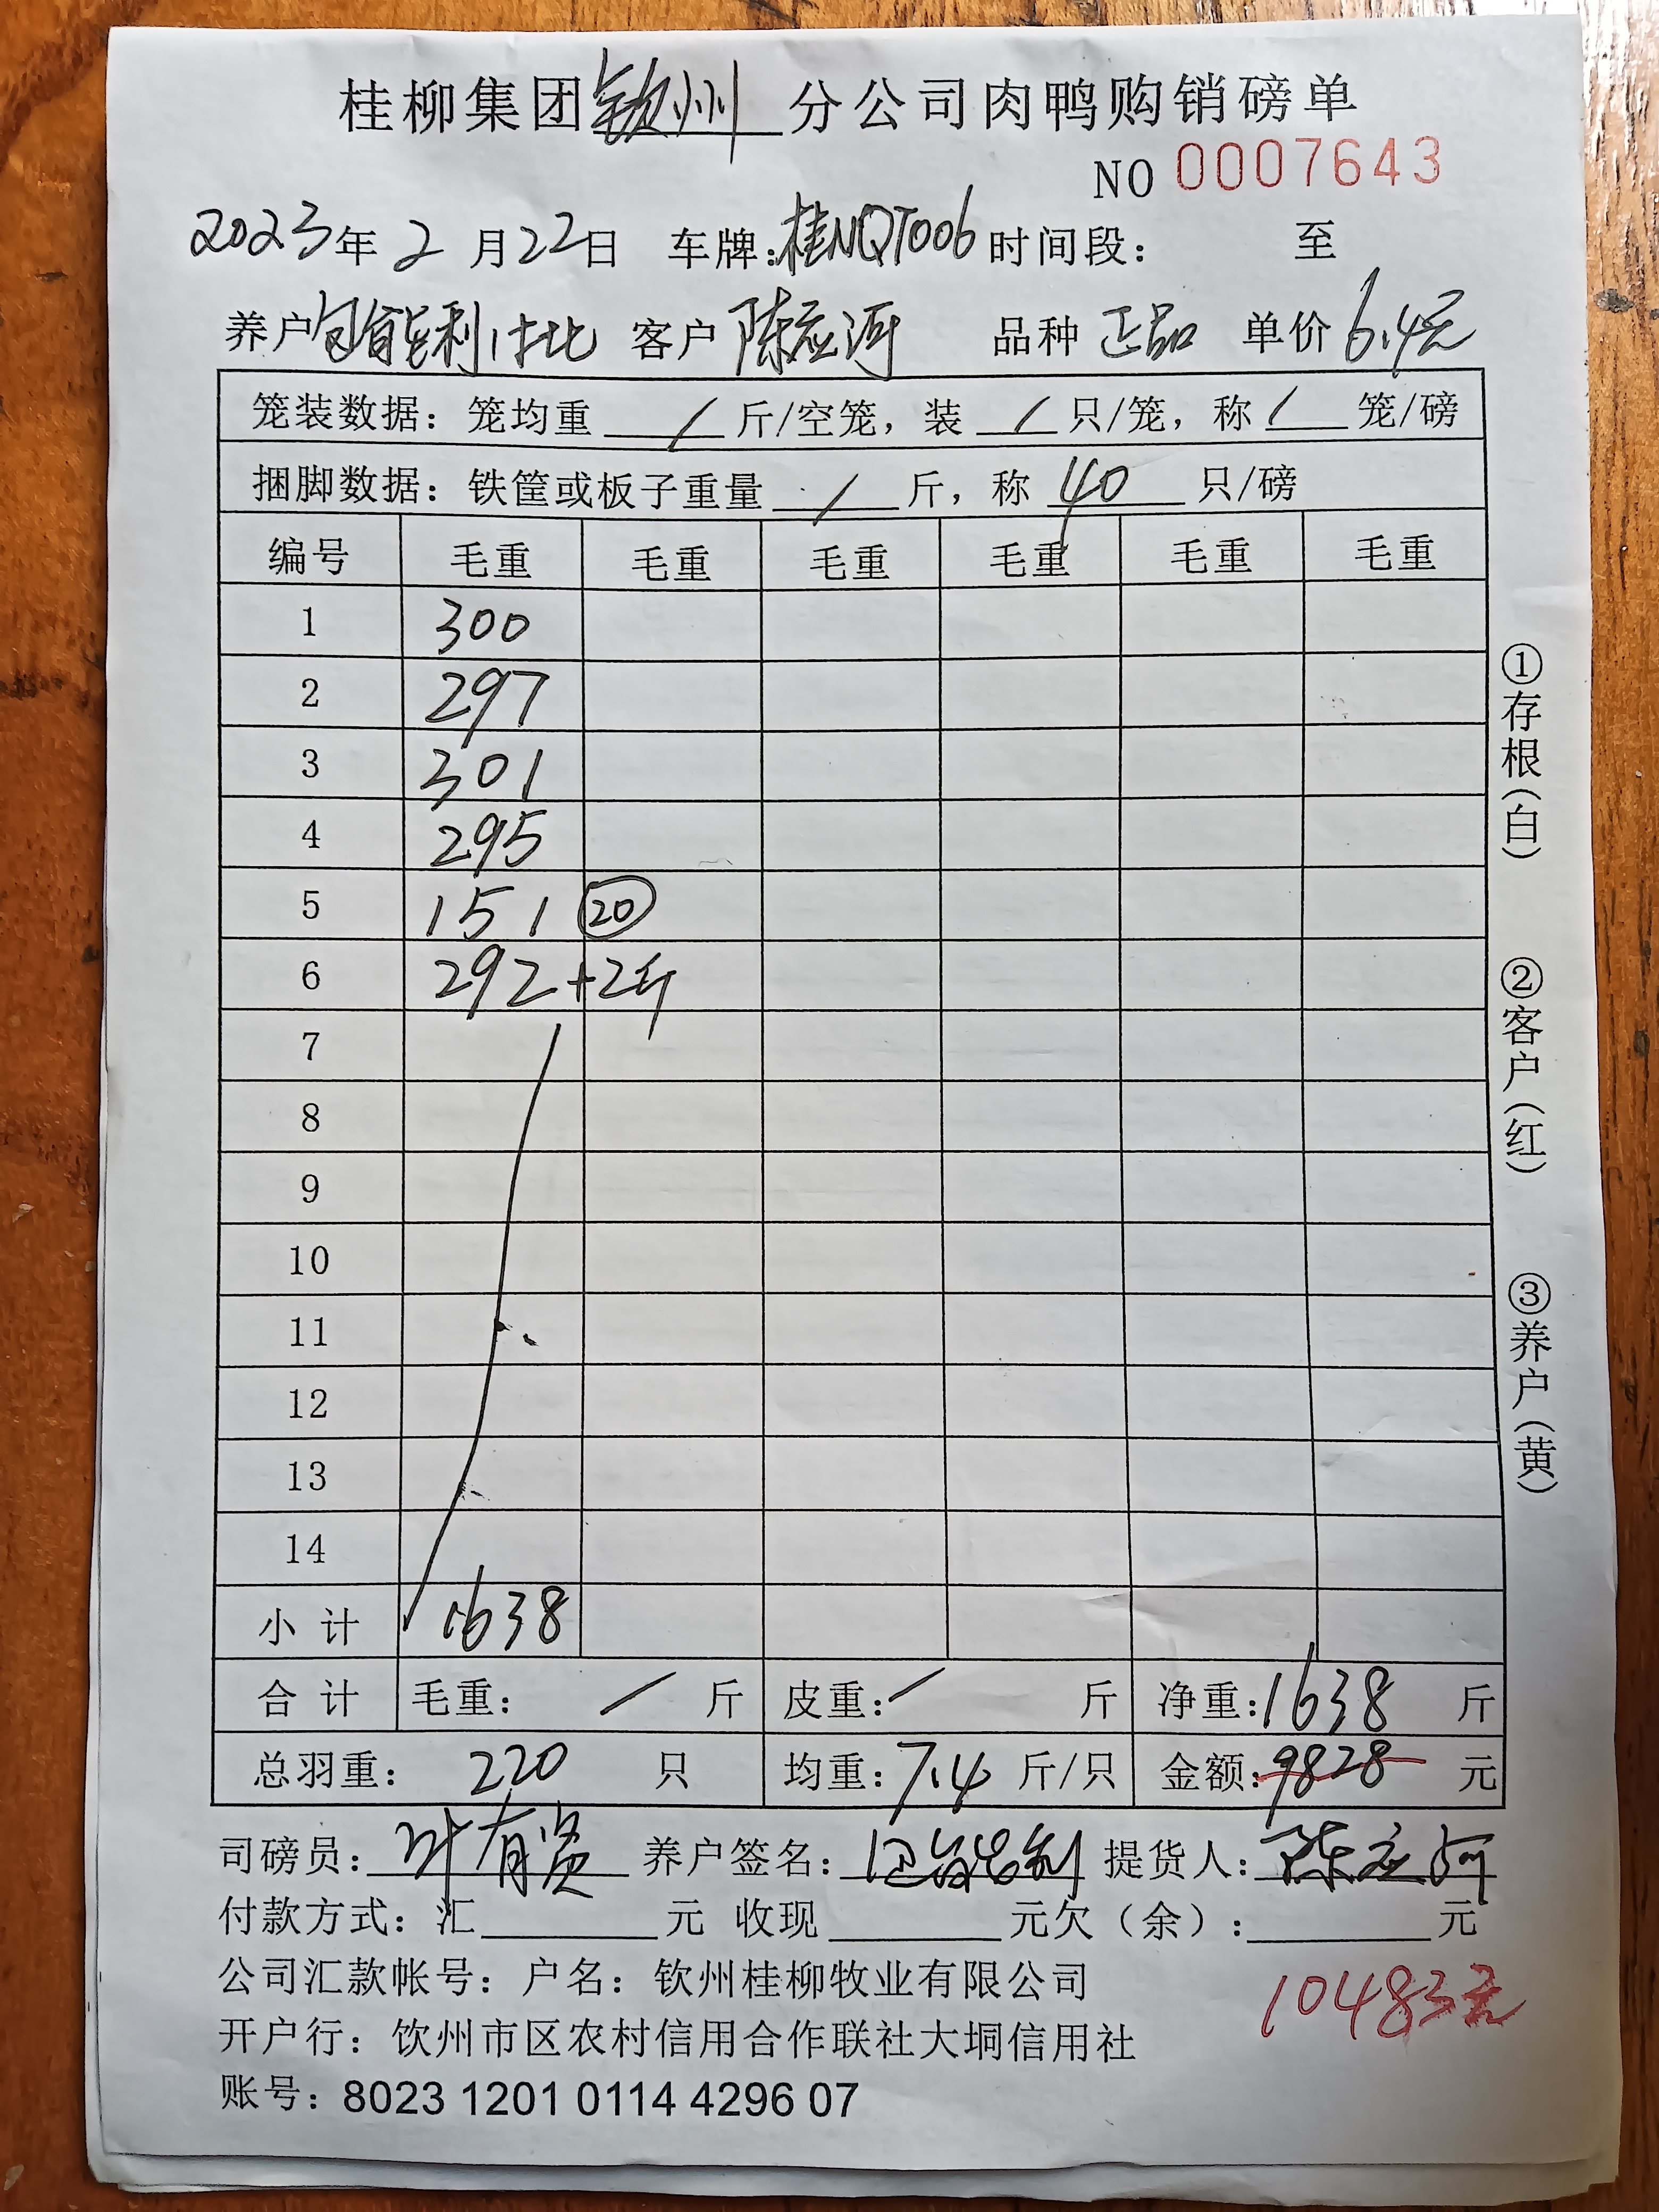 桂柳集团钦州分公司肉鸭购销磅单
NO 0007643
2023年2月22日 车牌:桂NQT006 时间段: 至
养户 客户 陈应河 品种 正品 单价 6.4元
笼装数据: 笼均重 / 斤/空笼, 装 / 只/笼, 称 / 笼/磅
捆脚数据: 铁筐或板子重量 / 斤, 称 40 只/磅
编号 毛重 毛重 毛重 毛重 毛重 毛重
1 300
2 297
3 301
4 295
5 151 20
6 292+2斤
7
8
9
10
11
12
13
14
小计 1638
合计 毛重: / 斤 皮重: / 斤 净重: 1638 斤
总羽重: 220 只 均重: 7.4 斤/只 金额: 9828 元
司磅员: 叶有贤 养户签名: 提货人: 陈应河
付款方式: 汇 元 收现 元欠(余): 元
公司汇款帐号: 户名: 钦州桂柳牧业有限公司
10483元
开户行: 钦州市区农村信用合作联社大垌信用社
账号: 8023 1201 0114 4296 07
①存根(白)
②客户(红)
③养户(黄)